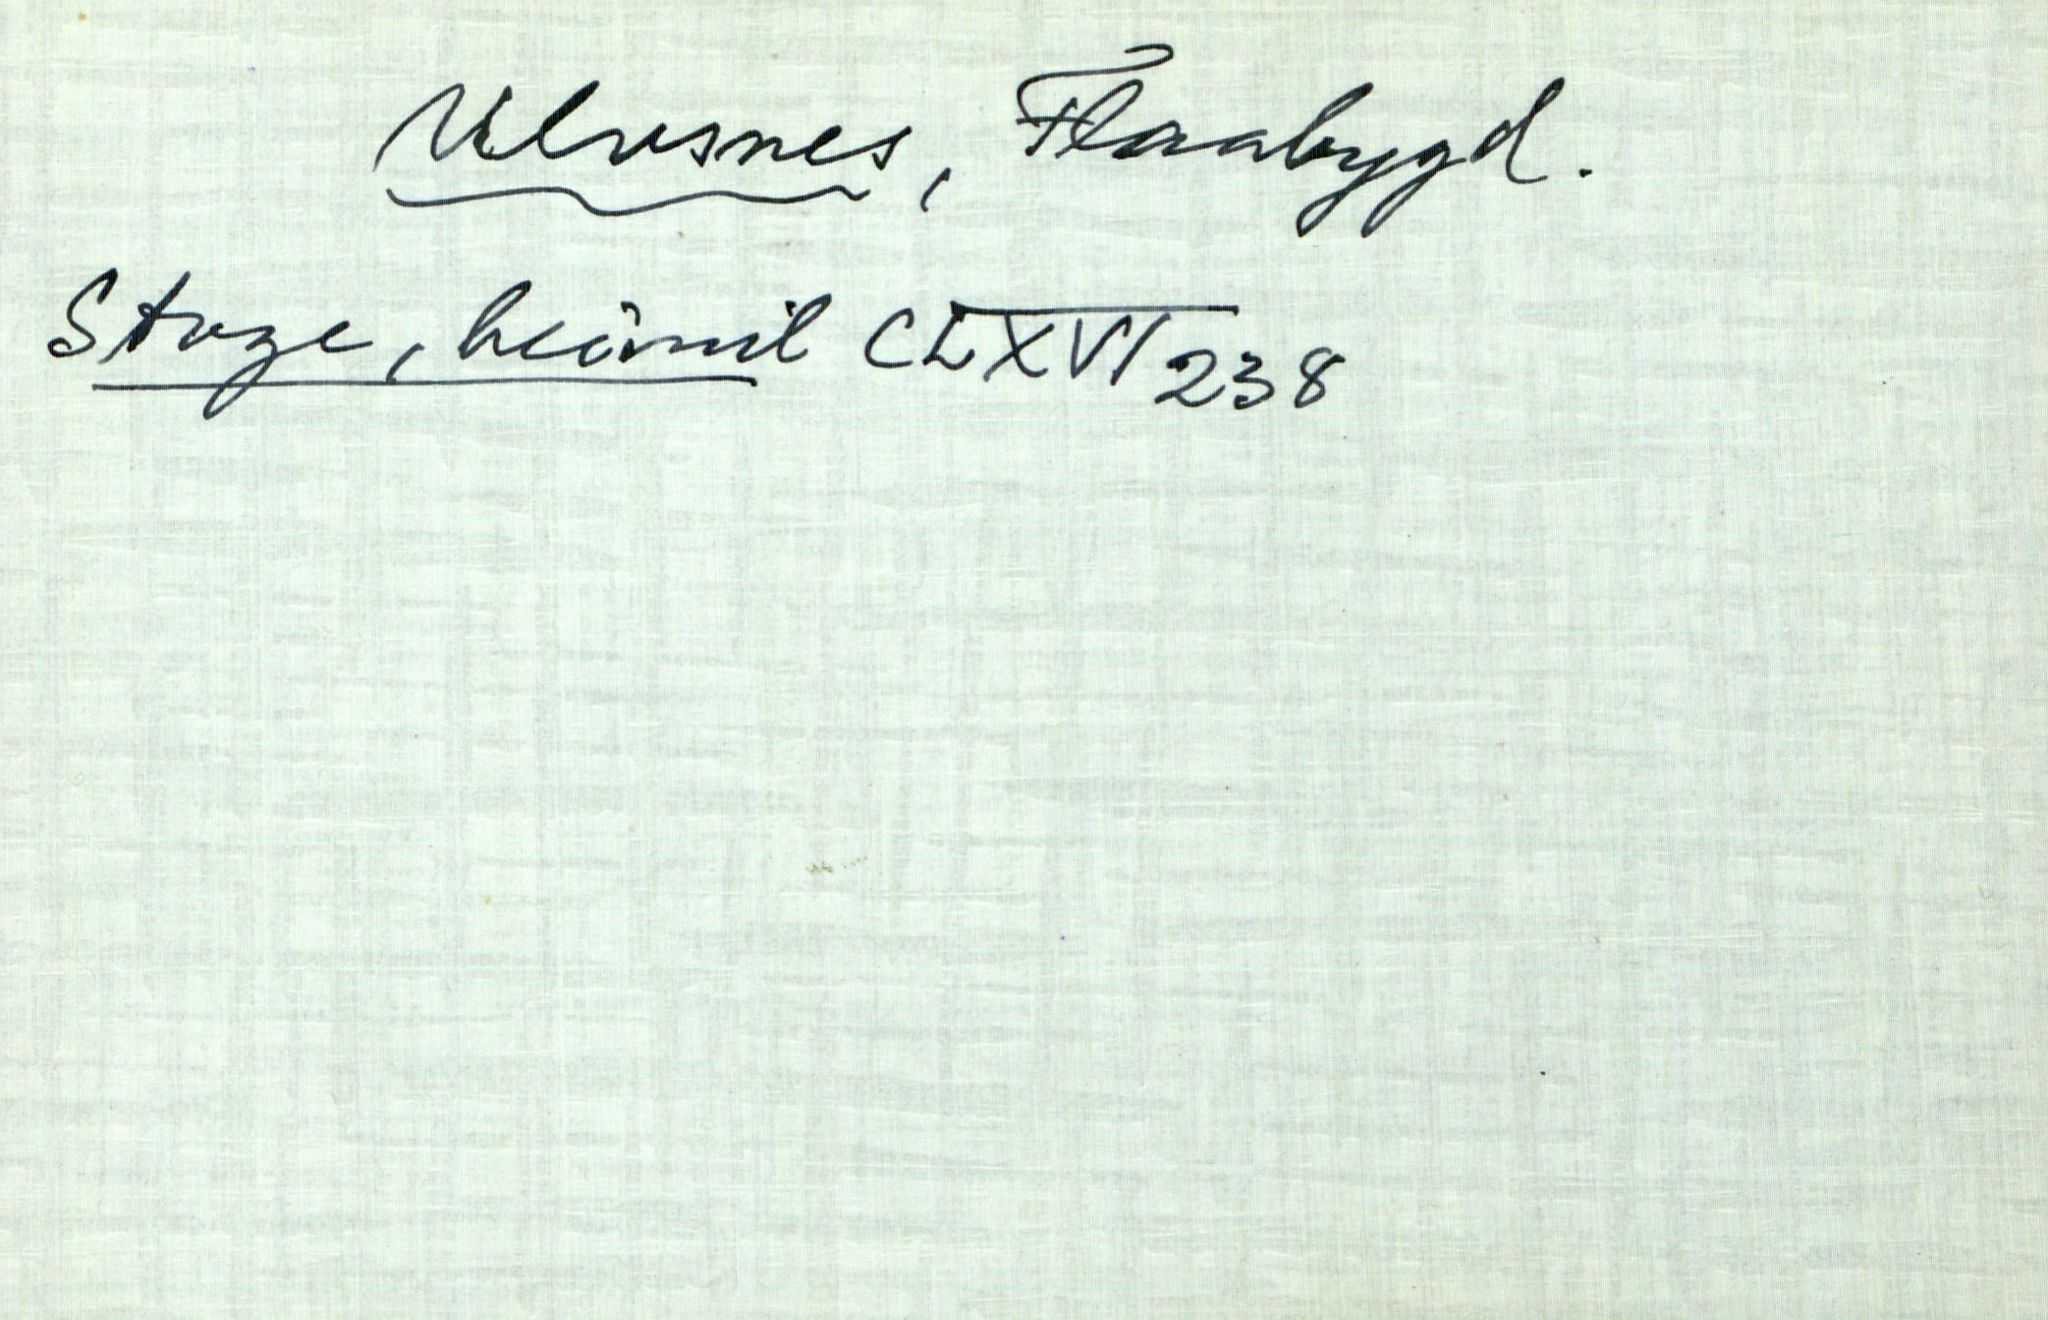 Ulvsnes, Flaabygd.
Stoge, heimil CLXVI 238